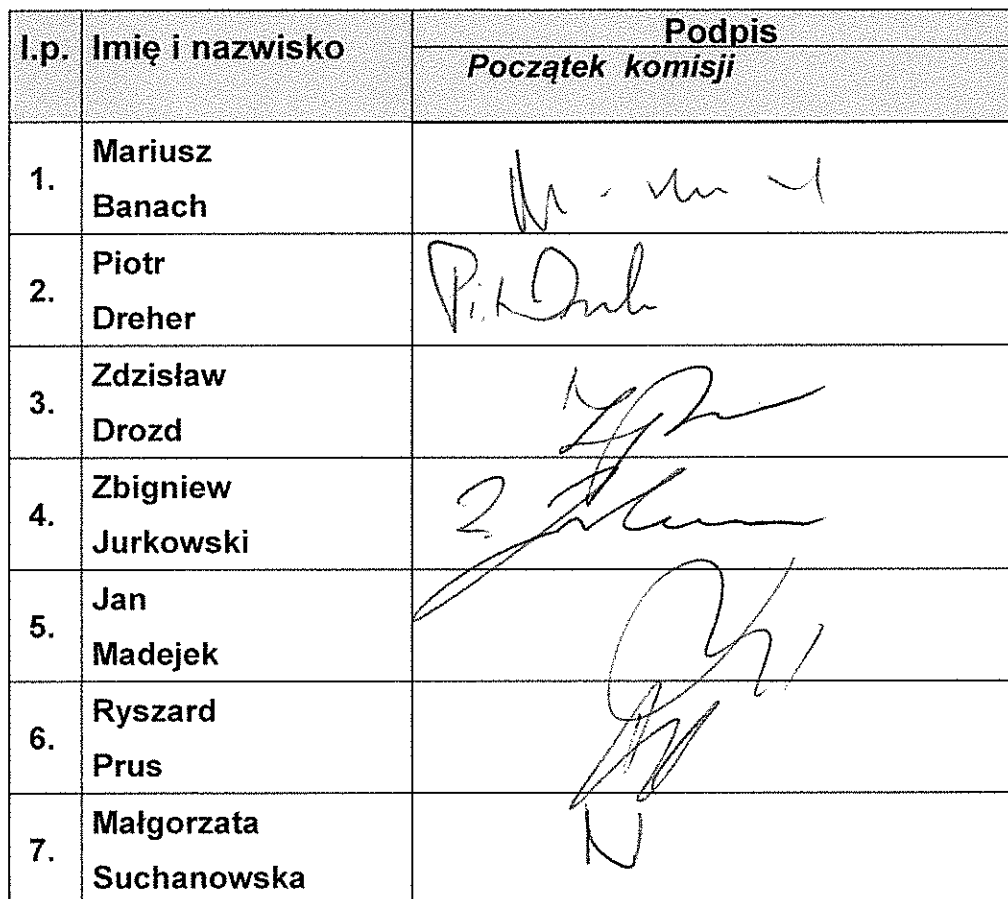 l.p. Imię i nazwisko Podpis
Początek komisji
1. Mariusz
Banach
2. Piotr
Dreher
3. Zdzisław
Drozd
4. Zbigniew
Jurkowski
5. Jan
Madejek
6. Ryszard
Prus
7. Małgorzata
Suchanowska
N